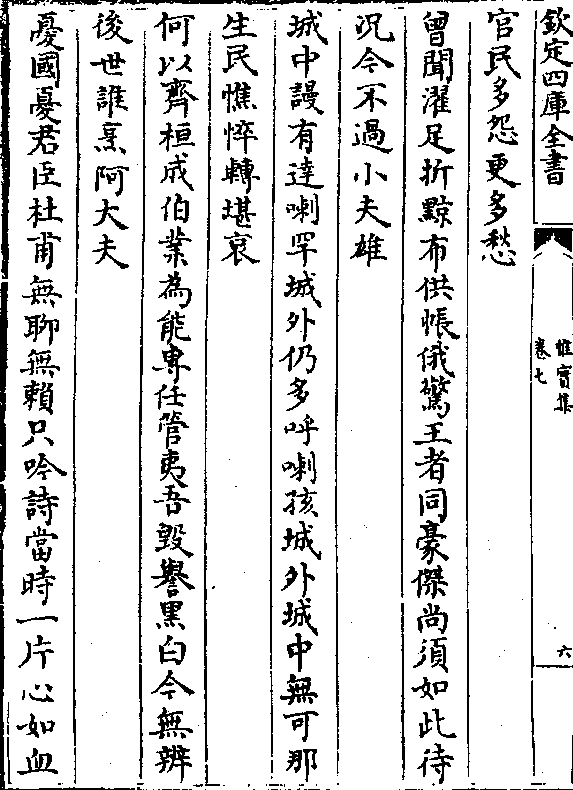 欽定四庫全書
惟實集
卷七
六
官民多怨更多愁
曾聞濯足折黥布供帳俄驚王者同豪傑尚須如此待
況今不過小夫雄
城中謾有達喇罕城外仍多呼喇孩城外城中無可那
生民憔悴轉堪哀
何以齊桓成伯業為能專任管夷吾毀譽黑白今無辨
後世誰烹阿大夫
憂國憂君臣杜甫無聊無賴只吟詩當時一片心如血